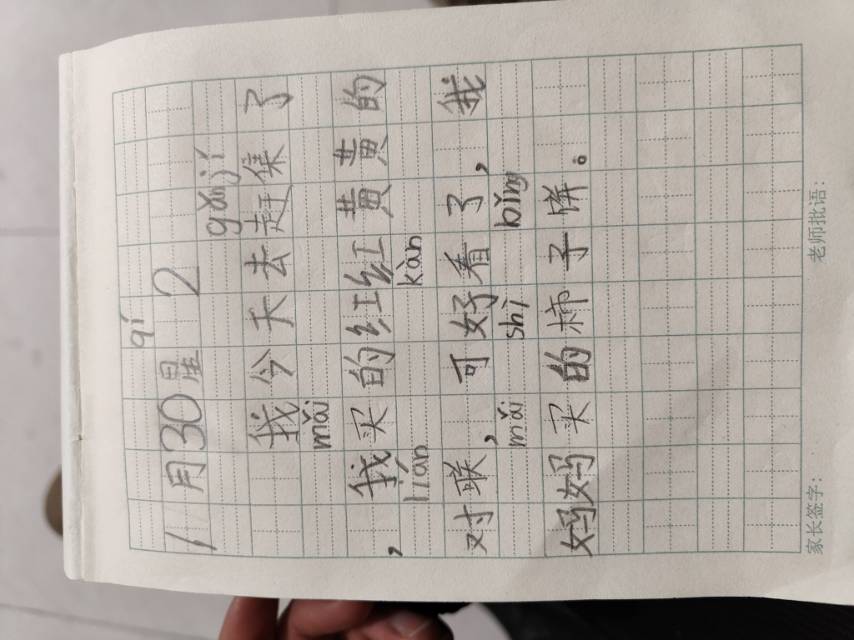 qí
1月30星 2
gǎn jí
我今天去赶集了
mǎi
，我买的红红黄黄的
lián kàn
对联，可好看了，我
mǎi shì bǐng
妈妈买的柿子饼。
家长签字： 老师批语：